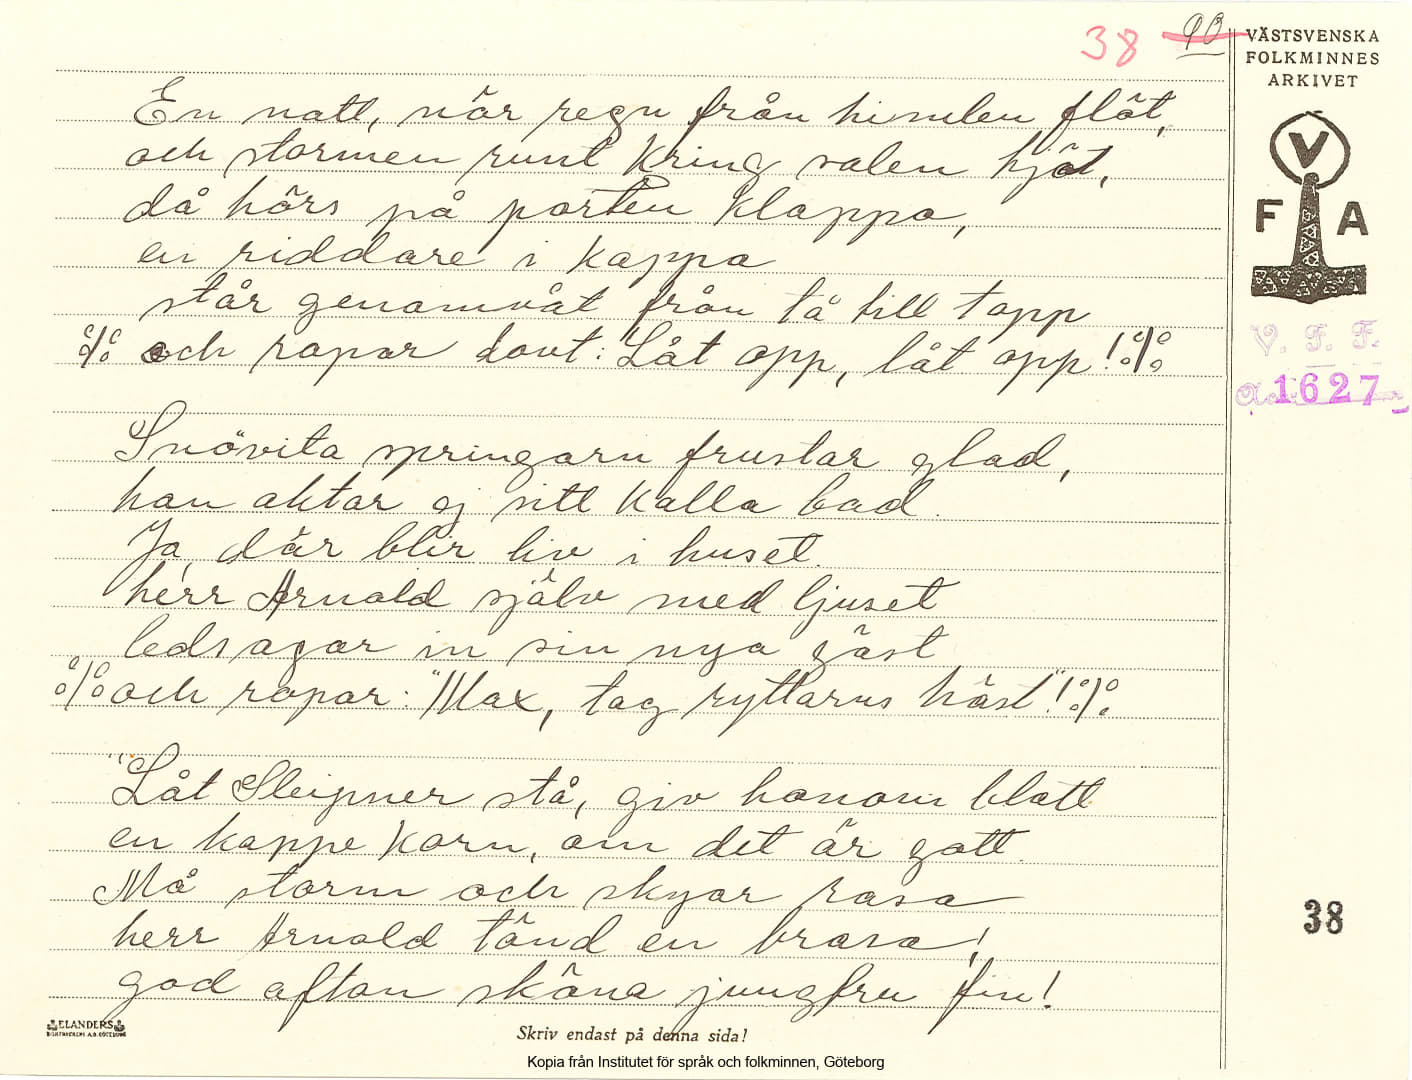 38 90
VÄSTSVENSKA
FOLKMINNES
ARKIVET
V
F A
V. F. F.
1627
En natt, när regn från himlen flöt,
och stormen runt kring salen tjöt,
då hörs på porten klappa,
en riddare i kappa
står genomvåt från tå till topp
%och ropar dovt: Låt opp, låt opp!%
Snövita springarn frustar glad,
han aktar ej sitt kalla bad.
Ja, där blir liv i huset.
herr Arnold själv med ljuset
ledsagar in sin nya gäst
%och ropar: "Max, tag ryttarns häst"!%
"Låt Sleipner stå, giv honom blott
en kappe korn, om det är gott.
Må storm och skyar rasa
herr Arnold tänd en brasa!
god afton sköna jungfru fin!
38
ELANDERS
Skriv endast på denna sida!
Kopia från Institutet för språk och folkminnen, Göteborg